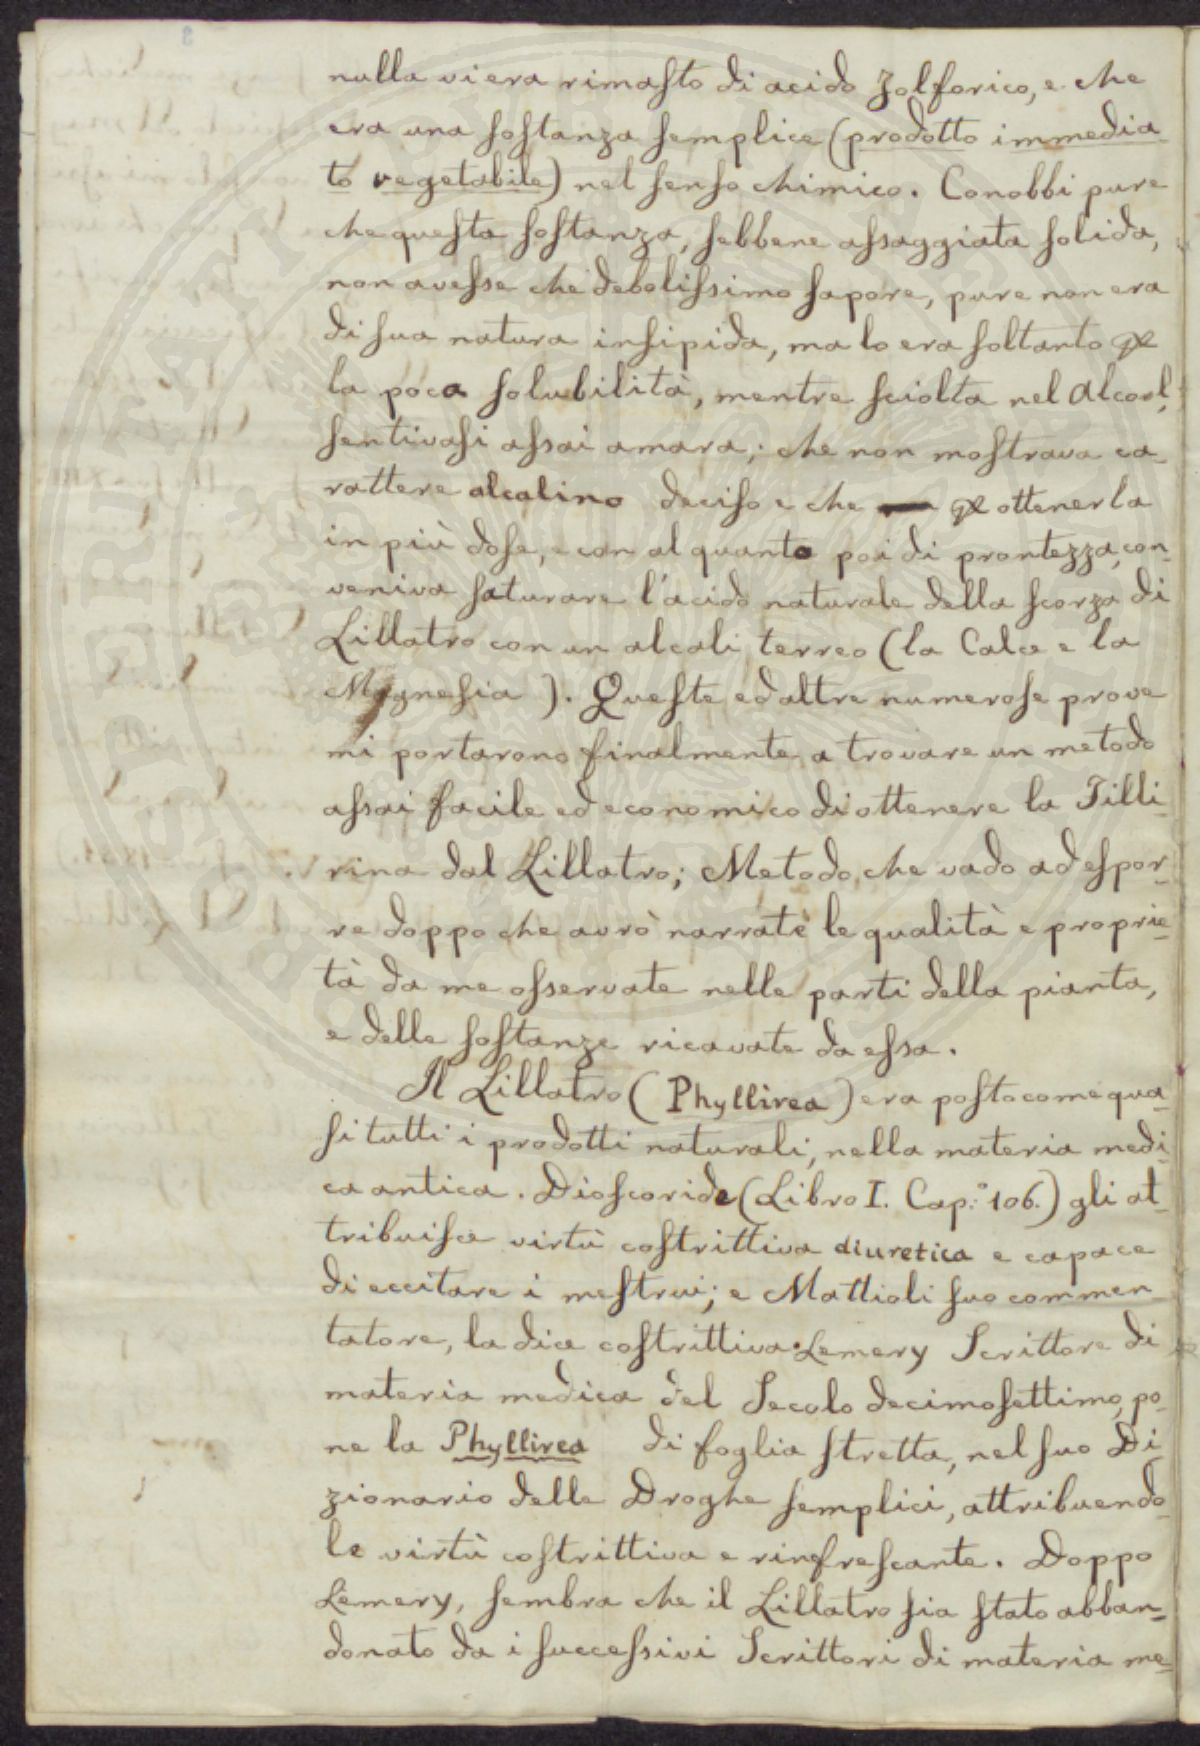 nulla vi era rimasto di acido zolforico, e che
era una sostanza semplice (prodotto immedia-
to vegetabile) nel senso chimico. Conobbi pure
che questa sostanza, sebbene assaggiata solida,
non avesse che debolissimo sapore, pure non era
di sua natura insipida, ma lo era soltanto
la poca solubilità, mentre sciolta nel Alcool,
sentivasi assai amara; che non mostrava ca-
rattere alcalino deciso e che ottenerla
in più dose, e con alquanto poi di prontezza, con-
veniva saturare l'acido naturale della scorza di
Lillatro con un alcali terreo (la Calce e la
Magnesia). Queste ed altre numerose prove
mi portarono finalmente a trovare un metodo
assai facile ed economico di ottenere la Filli-
rina dal Lillatro; Metodo, che vado ad espor-
re doppo che avrò narrate le qualità e proprie-
tà da me osservate nelle parti della pianta,
e delle sostanze ricavate da essa.
Il Lillatro (Phyllirea) era posto come qua-
si tutti i prodotti naturali, nella materia medi-
ca antica. Dioscoride (Libro I. Cap.° 106.) gli at-
tribuisce virtù costrittiva diuretica e capace
di eccitare i mestrui; e Mattioli suo commen-
tatore, la dice costrittiva. Lemery Scrittore di
materia medica del Secolo decimosettimo, po-
ne la Phyllirea di foglia stretta, nel suo Di-
zionario delle Droghe semplici, attribuendo-
le virtù costrittiva e rinfrescante. Doppo
Lemery, sembra che il Lillatro sia stato abban-
donato da i successivi Scrittori di materia me-